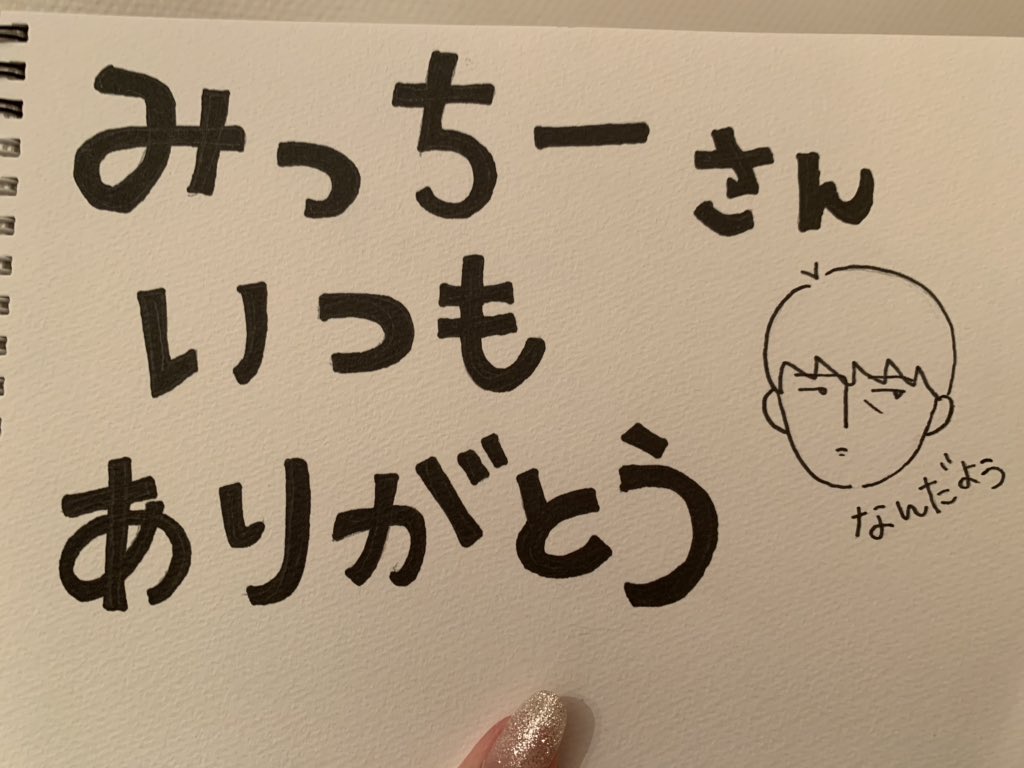 みっちーさん
いつも
ありがとう
なんだよう